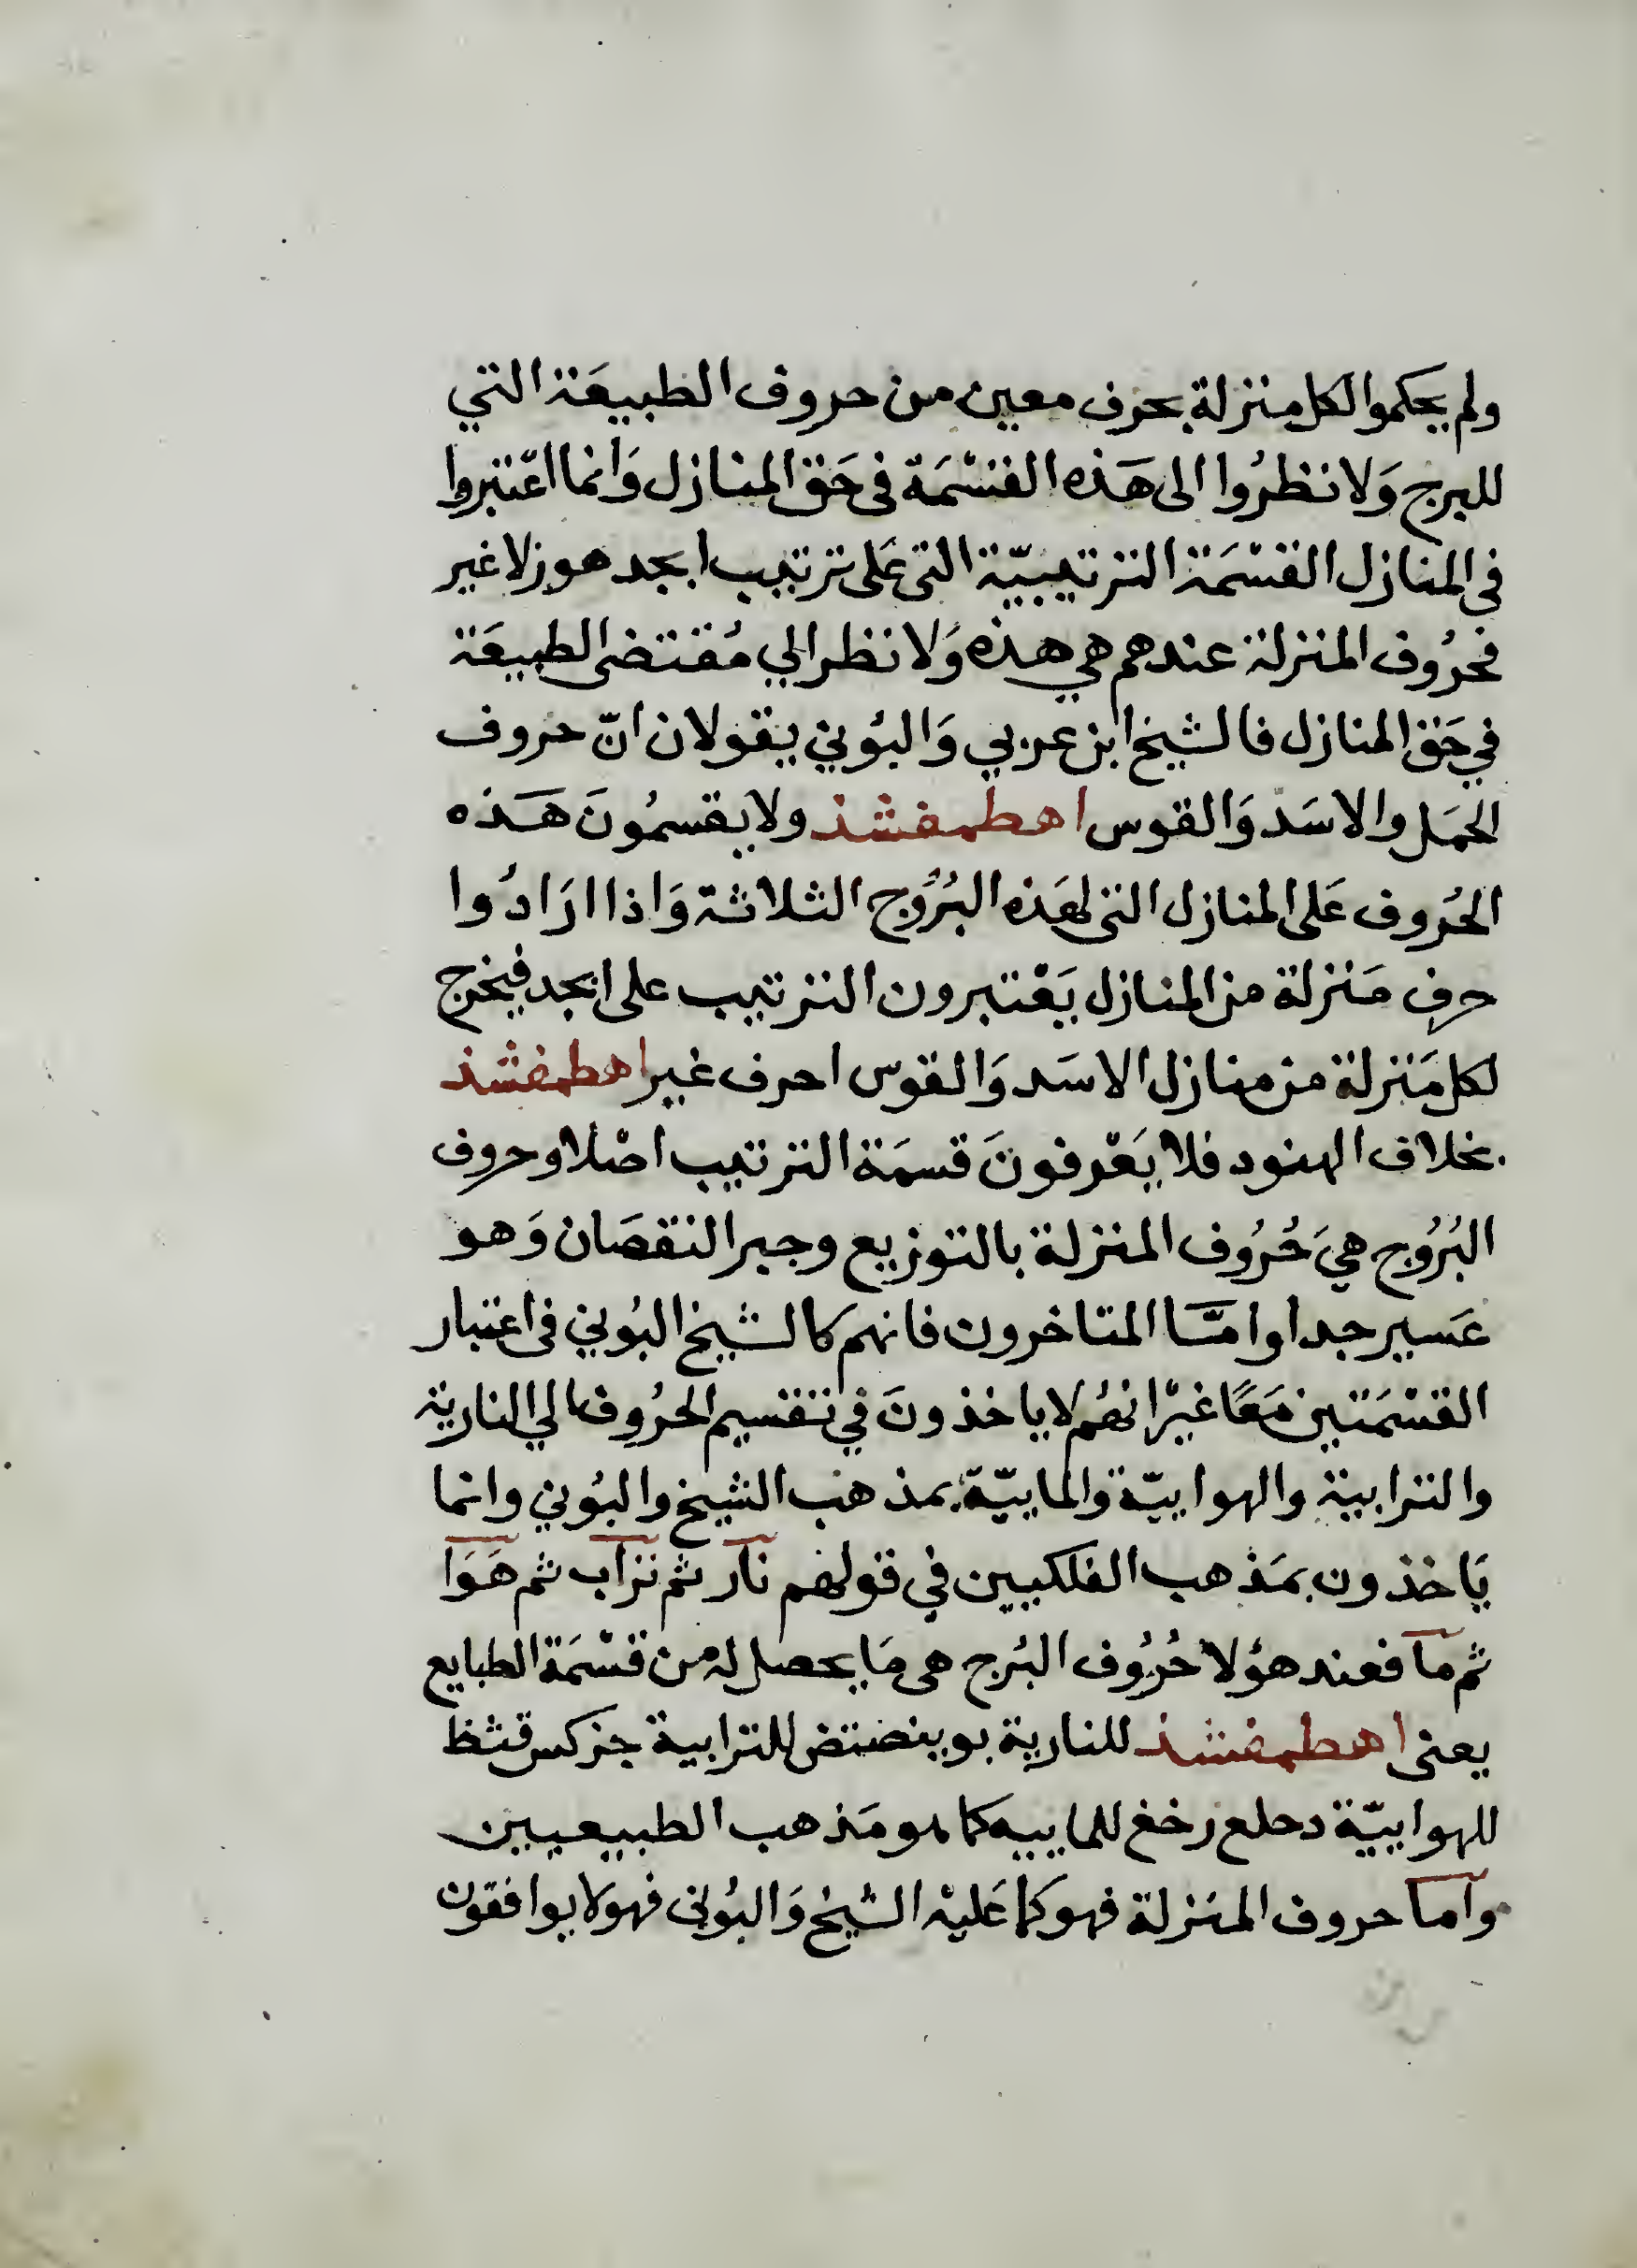 ولم يحكموا لكل منزلة بحرف معين من حروف الطبيعَة التي
للبرج وَلا نظرُوا الى هَذه القسْمَة فى حَق المنازل وَانما اعْتبروا
في المنازل القسْمَة الترتيبيّة التى عَلى ترتيب ابجد هوز لا غير
فحرُوف المنزلة عندهم هي هذه وَلا نظر الي مُقتضى الطبيعَة
في حَق المنازل فالشيخ ابن عربي وَالبُوني يقولان انّ حروف
الحمَل والاسَد وَالقوس اهطمفشذ ولا يقسمُونَ هَذه
الحُروف عَلى المنازل التى لهَذه البُرُوج الثلاثة وَاذا ارَادُوا
حرف مَنزلة من المنازل يَعْتبرون الترتيب على ابجد فيخرج
لكل مَنزلة من منازل الاسَد وَالقوس احرف غير اهطمفشذ
بخلاف الهنود فلا يَعْرفونَ قسمَة الترتيب اصْلا وحروف
البُرُوج هيَ حُرُوف المنزلة بالتوزيع وجبر النقصَان وَهو
عَسير جدا وامَّا المتاخرون فانهم كالشيخ البُوني فى اعتبار
القسْمَتين مَعًا غيْر انهُم لا ياخذونَ في تقسيم الحرُوف الي النارية
والترابية والهوابيّة والمابيّة بمذهب الشيخ والبُوني وانما
يَاخذون بمَذهب الفلكيين في قولهم نآر ثم ترآب ثم هَوَآ
ثم مآ فعند هؤلا حُرُوف البُرج هى مَا يحصل له من قسْمَة الطبايع
يعنى اهطمفشذ للنارية بوينصتض للترابية جزكس قثظ
للهوابيّة دحلع رخغ للمابيه كما هو مَذهب الطبيعيين
وآما حروف المنزلة فهو كما عَليْه الشيخ وَالبُونى فهو لا يوافقون